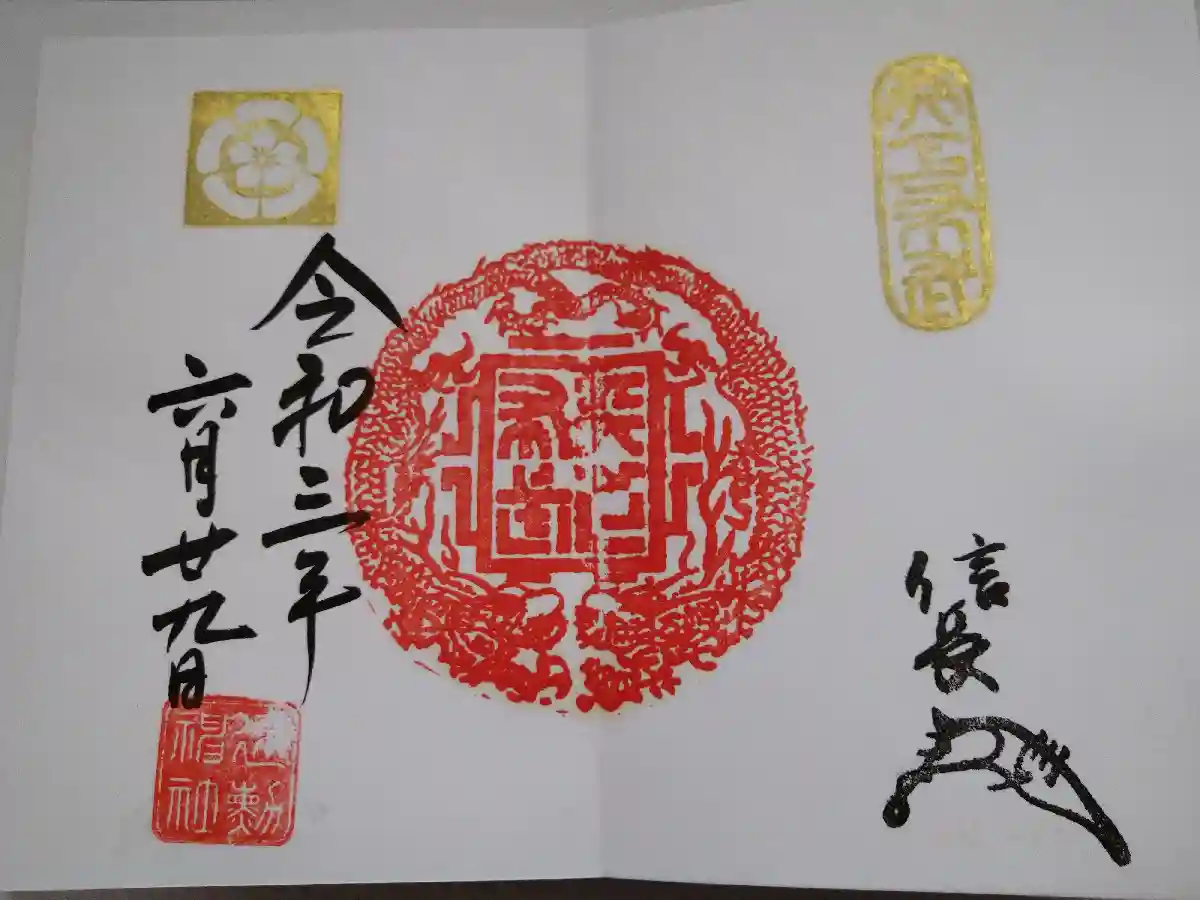 天下布武
信長
令和三年
六月廿九日
建勲
神社